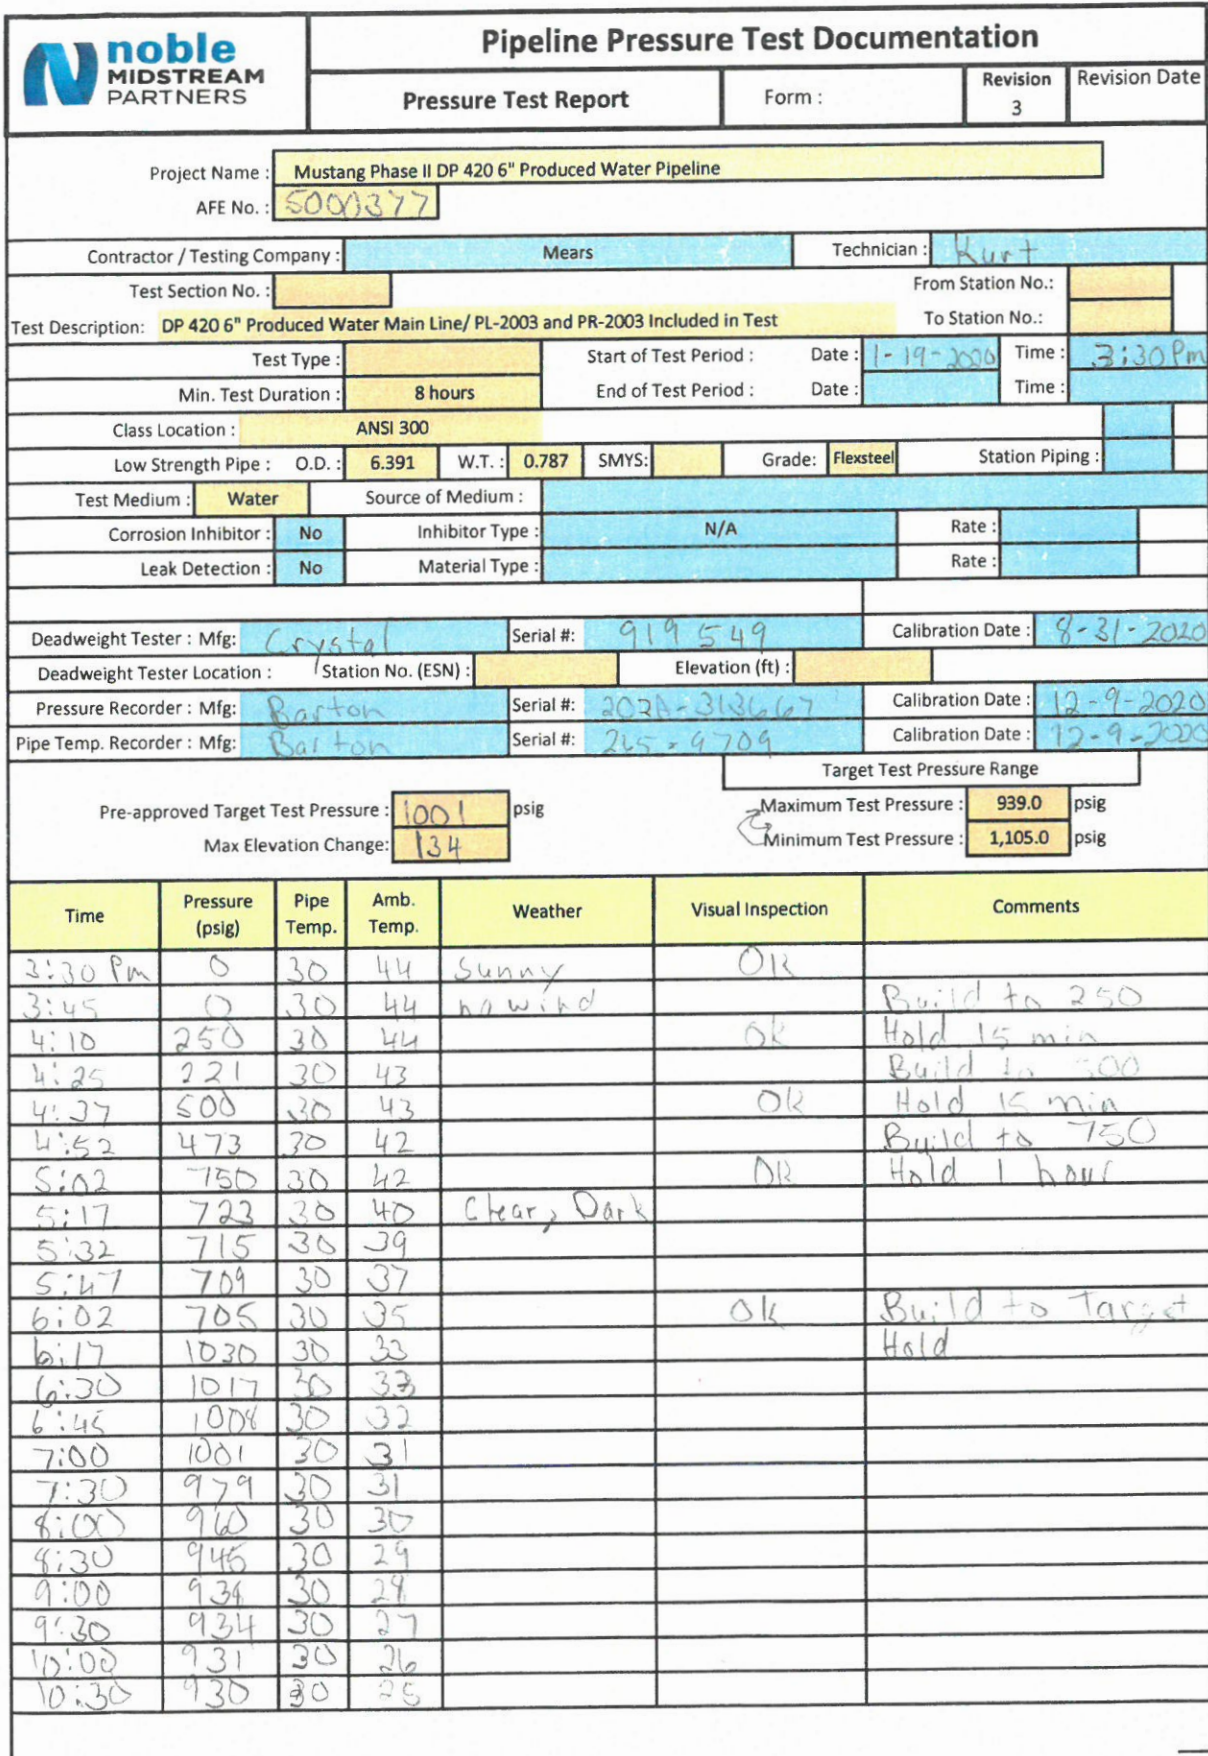 noble
MIDSTREAM
PARTNERS
Pipeline Pressure Test Documentation
Pressure Test Report Form : Revision 3 Revision Date
Project Name : Mustang Phase II DP 420 6" Produced Water Pipeline
AFE No. : 5000377
Contractor / Testing Company : Mears Technician : Kurt
Test Section No. : From Station No.:
Test Description: DP 420 6" Produced Water Main Line/ PL-2003 and PR-2003 Included in Test To Station No.:
Test Type : Start of Test Period : Date : 1-19-2020 Time : 3:30 Pm
Min. Test Duration : 8 hours End of Test Period : Date : Time :
Class Location : ANSI 300
Low Strength Pipe : O.D. : 6.391 W.T. : 0.787 SMYS: Grade: Flexsteel Station Piping :
Test Medium : Water Source of Medium :
Corrosion Inhibitor : No Inhibitor Type : N/A Rate :
Leak Detection : No Material Type : Rate :
Deadweight Tester : Mfg: Crystal Serial #: 919549 Calibration Date : 8-31-2020
Deadweight Tester Location : Station No. (ESN) : Elevation (ft) :
Pressure Recorder : Mfg: Barton Serial #: 202A-313667 Calibration Date : 12-9-2020
Pipe Temp. Recorder : Mfg: Barton Serial #: 265-9709 Calibration Date : 12-9-2020
Target Test Pressure Range
Pre-approved Target Test Pressure : 1001 psig Maximum Test Pressure : 939.0 psig
Max Elevation Change: 134 Minimum Test Pressure : 1,105.0 psig
Time Pressure (psig) Pipe Temp. Amb. Temp. Weather Visual Inspection Comments
3:30 Pm 0 30 44 Sunny OK
3:45 0 30 44 no wind Build to 250
4:10 250 30 44 Ok Hold 15 min
4:25 221 30 43 Build to 500
4:37 500 30 43 OK Hold 15 min
4:52 473 30 42 Build to 750
5:02 750 30 42 OK Hold 1 hour
5:17 723 30 40 Clear, Dark
5:32 715 30 39
5:47 709 30 37
6:02 705 30 35 Ok Build to Target
6:17 1030 30 33 Hold
6:30 1017 30 33
6:45 1008 30 32
7:00 1001 30 31
7:30 979 30 31
8:00 960 30 30
8:30 945 30 29
9:00 938 30 28
9:30 934 30 27
10:00 931 30 26
10:30 930 30 25